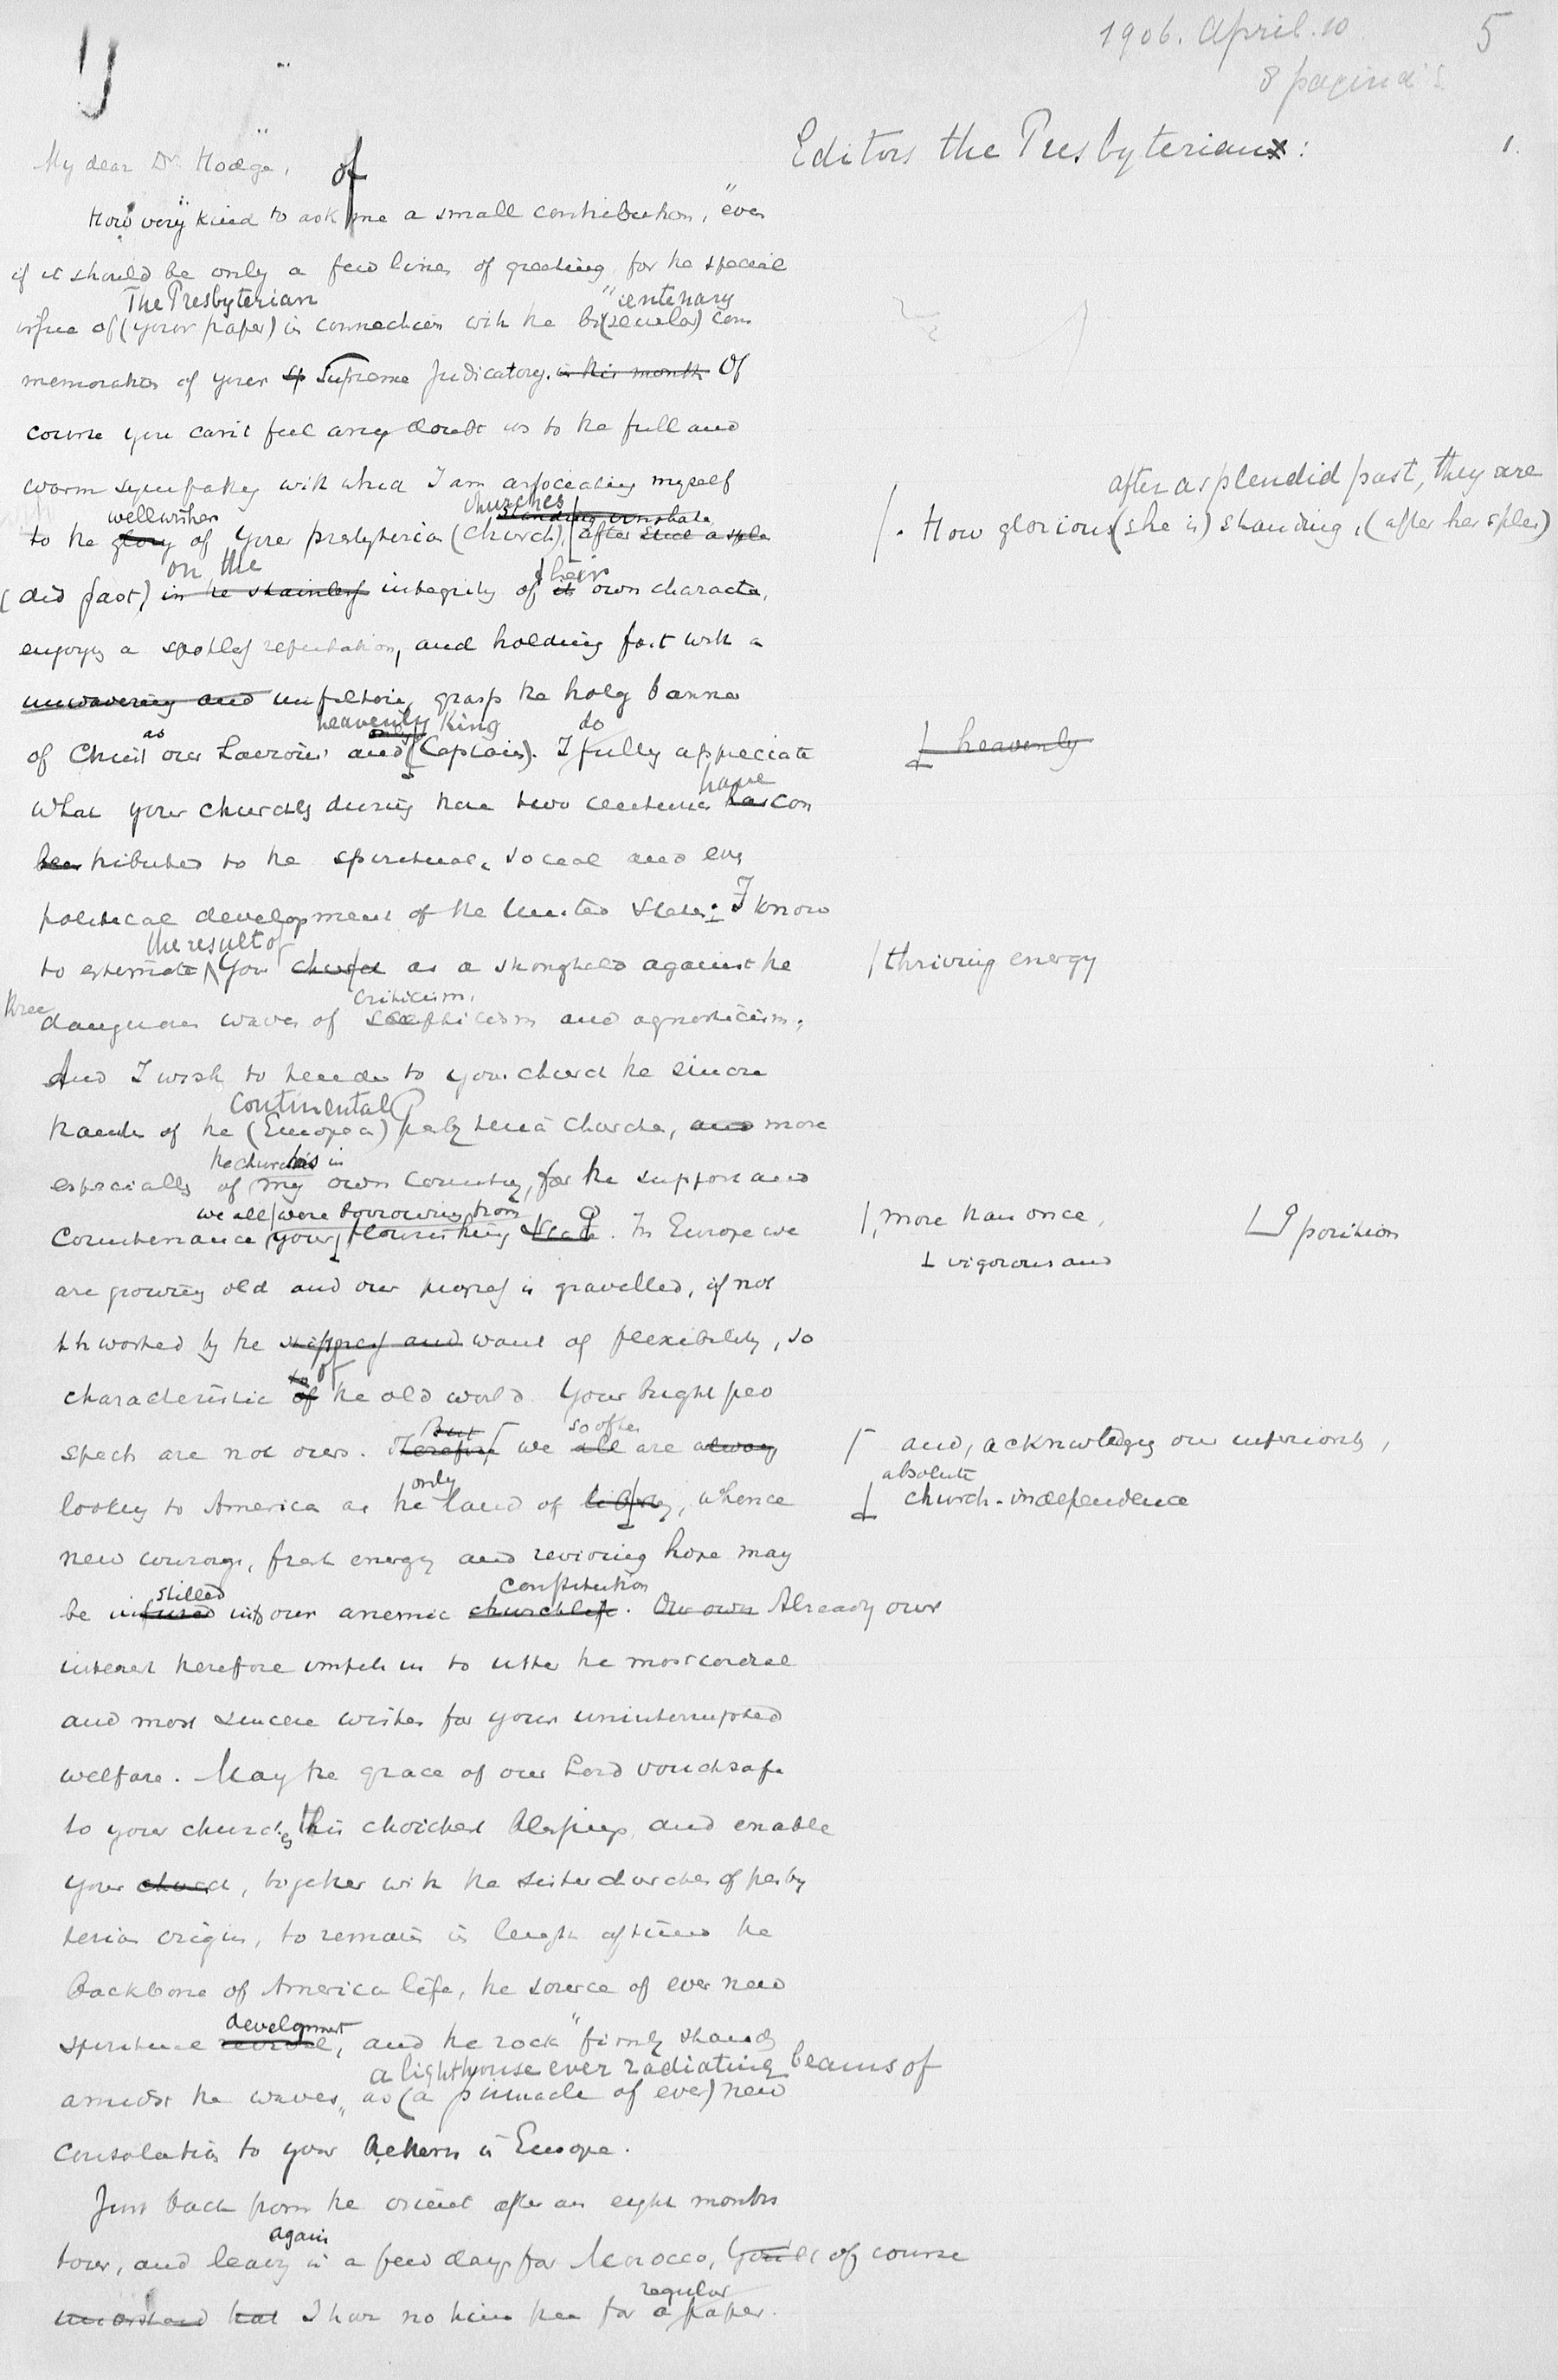 1906. April. 10
5
8 pagina's
Editors the Presbyterian:
1.
My dear Dr. Hodge,
of
How very kind to ask me a small contribution, "even
if it should be only a few lines of greeting for the special
The Presbyterian "centenary
issue of (your paper) in connection with the bi(secular) com
memoration of your Supreme Judicatory. in this month Of
course you can't feel any doubt as to the full and
after a splendid past, they are
warm sympathy with which I am associating myself
churches
wellwishes standing unshate
to the glory of your presbyterian (church), after such a splen
. How glorious (she is) standing, (after her splen)
on the their
(did past) in the stainless integrity of its own character,
enjoying a spotless reputation, and holding fast with a
unwavering and unfaltering grasp the holy banner
heavenly King do
as
of Christ our Saviour and (Captain). I fully appreciate
heavenly
have
what your churches during these two centuries has con
been tributed to the spiritual, social and even
political development of the United States: I know
the result of
to estimate your church as a stronghold against the
thriving energy
criticism,
three
dangerous waves of scepticism and agnosticism;
And I wish to tender to your church the sincere
continental
thanks of the (European) presbyterian churches, and more
the churches in
especially of my own country, for the support and
we all were borrowing from
countenance your flourishing State. In Europe we
, more than once,
position
vigorous and
are growing old and our progress is gravelled, if not
thwarted by the stiffness and want of flexibility, so
to of
characteristic of the old world. Your bright pro
But so often
spects are not ours. Therefore we all are always
and, acknowledging our inferiority,
only
looking to America as the land of liberty, whence
absolute
church-independence
new courage, fresh energy and reviving hope may
stilled constitution
be infused into our anemic churchlife. Our own Already our
interest therefore impels us to utter the most cordial
and most sincere wishes for your uninterrupted
welfare. May the grace of our Lord vouchsafe
to your churches this choicest blessings, and enable
your church, together with the sisterchurches of presby
terian origin, to remain in length of time the
backbone of America life, the source of ever new
development
spiritual revival, and the rock "firmly standing
a lighthouse ever radiating beams of
amidst the waves," as (a pinnacle of ever) new
consolation to your brethern in Europe.
Just back from the orient after an eight months
again
tour, and leaving in a few days for Morocco, You'll of course
regular
understand that I have no time free for a paper.